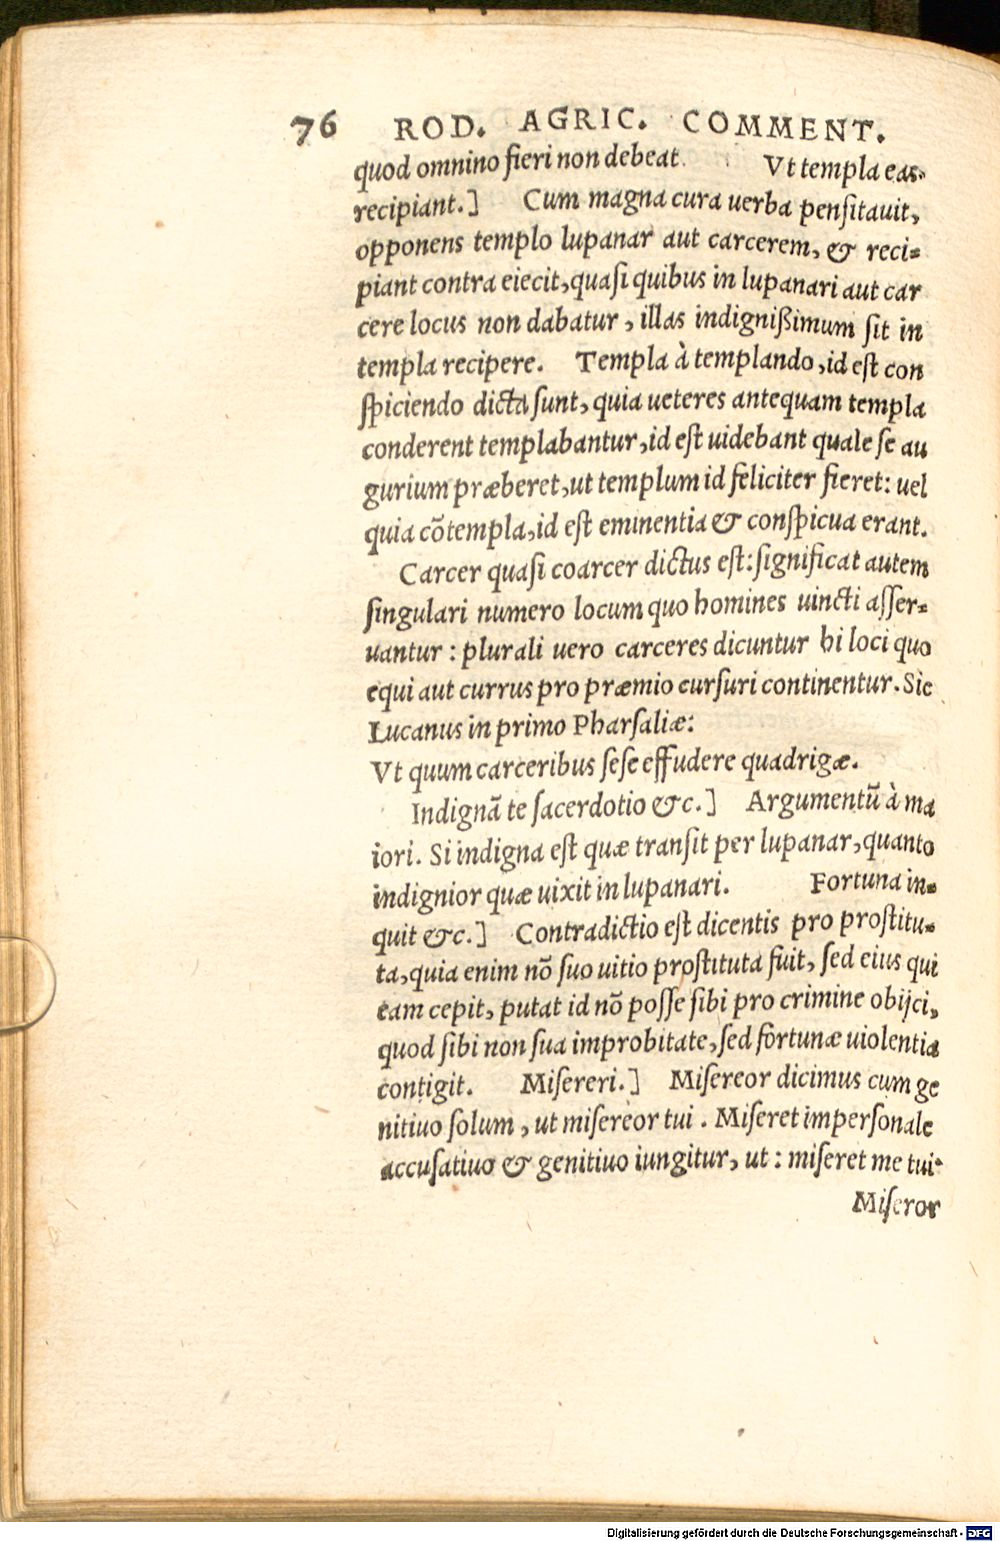 76 ROD. AGRIC. COMMENT.
quod omnino fieri non debeat. Vt templa eas
recipiant.] Cum magna cura uerba pensitauit,
opponens templo lupanar aut carcerem, & reci-
piant contra eiecit, quasi quibus in lupanari aut car
cere locus non dabatur, illas indignißimum sit in
templa recipere. Templa à templando, id est con
spiciendo dicta sunt, quia ueteres antequam templa
conderent templabantur, id est uidebant quale se au
gurium præberet, ut templum id feliciter fieret: uel
quia cōtempla, id est eminentia & conspicua erant.
Carcer quasi coarcer dictus est: significat autem
singulari numero locum quo homines uincti asser-
uantur: plurali uero carceres dicuntur hi loci quo
equi aut currus pro præmio cursuri continentur. Sic
Lucanus in primo Pharsaliæ:
Vt quum carceribus sese effudere quadrigæ.
Indignā te sacerdotio &c.] Argumentū à ma
iori. Si indigna est quæ transit per lupanar, quanto
indignior quæ uixit in lupanari. Fortuna in-
quit &c.] Contradictio est dicentis pro prostitu-
ta, quia enim nō suo uitio prostituta fuit, sed eius qui
eam cepit, putat id nō posse sibi pro crimine obijci,
quod sibi non sua improbitate, sed fortunæ uiolentia
contigit. Misereri.] Misereor dicimus cum ge
nitiuo solum, ut misereor tui. Miseret impersonale
accusatiuo & genitiuo iungitur, ut: miseret me tui.
Miseror
Digitalisierung gefördert durch die Deutsche Forschungsgemeinschaft - DFG